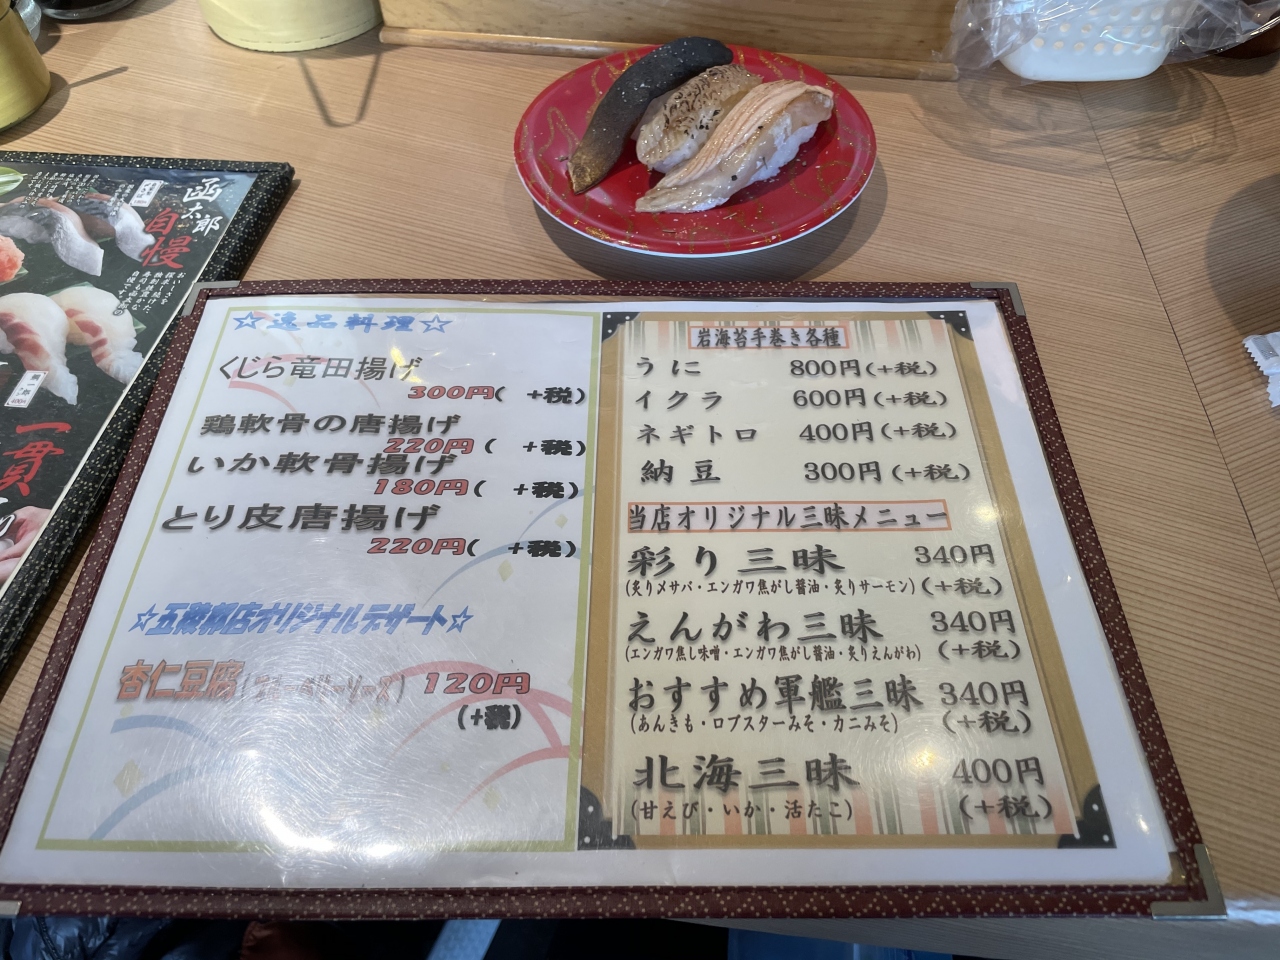 函太郎
自慢
一貫
☆逸品料理☆
くじら竜田揚げ
300円( +税)
鶏軟骨の唐揚げ
220円( +税)
いか軟骨揚げ
180円( +税)
とり皮唐揚げ
220円( +税)
☆五稜郭店オリジナルデザート☆
杏仁豆腐
120円
(+税)
岩海苔手巻き各種
うに 800円(+税)
イクラ 600円(+税)
ネギトロ 400円(+税)
納豆 300円(+税)
当店オリジナル三昧メニュー
彩り三昧 340円
(炙りメサバ・エンガワ焦がし醤油・炙りサーモン)(+税)
えんがわ三昧 340円
(エンガワ焦し味噌・エンガワ焦がし醤油・炙りえんがわ) (+税)
おすすめ軍艦三昧 340円
(あんきも・ロブスターみそ・カニみそ) (+税)
北海三昧 400円
(甘えび・いか・活たこ) (+税)